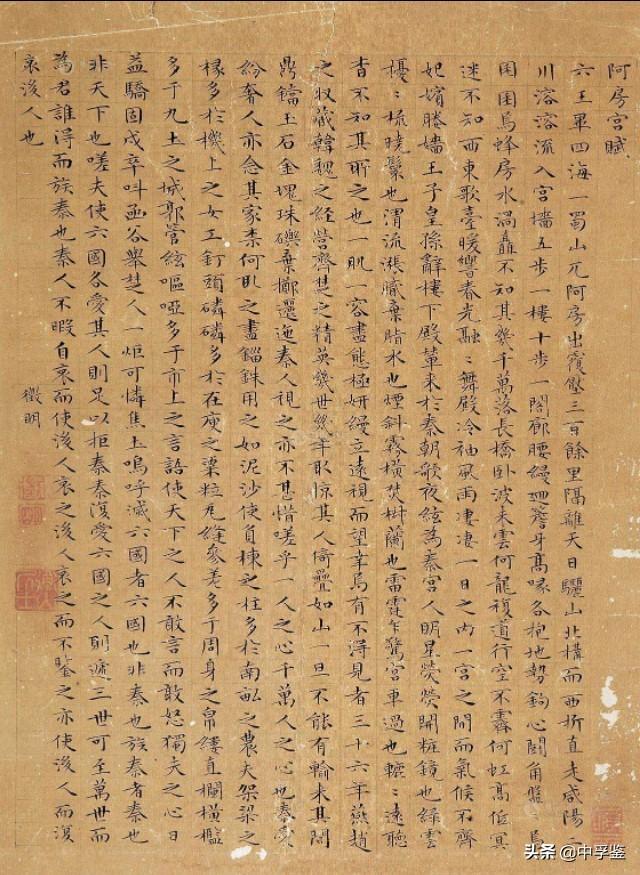 阿房宮賦
六王畢四海一蜀山兀阿房出覆壓三百餘里隔離天日驪山北構而西折直走咸陽二
川溶溶流入宮墻五步一樓十步一閣廊腰縵廻簷牙高啄各抱地勢鉤心鬭角盤〻焉
囷囷焉蜂房水渦矗不知其幾千萬落長橋卧波未雲何龍複道行空不霽何虹高低冥
迷不知西東歌臺暖響春光融〻舞殿冷袖風雨凄凄一日之內一宮之間而氣候不齊
妃嬪媵嬙王子皇孫辭樓下殿輦来於秦朝歌夜絃為秦宮人明星熒熒開粧鏡也綠雲
擾〻梳曉鬟也渭流漲膩棄脂水也煙斜霧橫焚椒蘭也雷霆乍驚宮車過也轆〻遠聽
杳不知其所之也一肌一容盡態極妍縵立遠視而望幸焉有不得見者三十六年燕趙
之收藏韓魏之經營齊楚之精英幾世幾年取掠其人倚疊如山一旦不能有輸来其間
鼎鐺玉石金塊珠礫棄擲邐迤秦人視之亦不甚惜嗟乎一人之心千萬人之心也秦愛
紛奢人亦念其家柰何取之盡錙銖用之如泥沙使負棟之柱多於南畝之農夫架梁之
椽多於機上之女工釘頭磷磷多於在庾之粟粒瓦縫參差多于周身之帛縷直欄橫檻
多于九土之城郭管絃嘔啞多于市上之言語使天下之人不敢言而敢怒獨夫之心日
益驕固戍卒叫函谷舉楚人一炬可憐焦土嗚呼滅六國者六國也非秦也族秦者秦也
非天下也嗟夫使六國各愛其人則足以拒秦秦復愛六國之人則遞三世可至萬世而
為君誰得而族秦也秦人不暇自哀而使後人哀之後人哀之而不鑒之亦使後人而復
哀後人也
徵明
头条 @中孚鉴